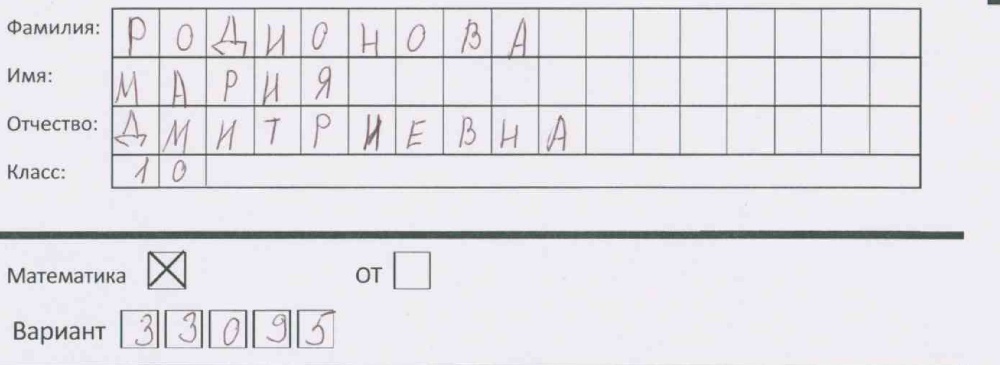 Фамилия: РОДИОНОВА
Имя: МАРИЯ
Отчество: ДМИТРИЕВНА
Класс: 10
Математика ОТ
Вариант 33095